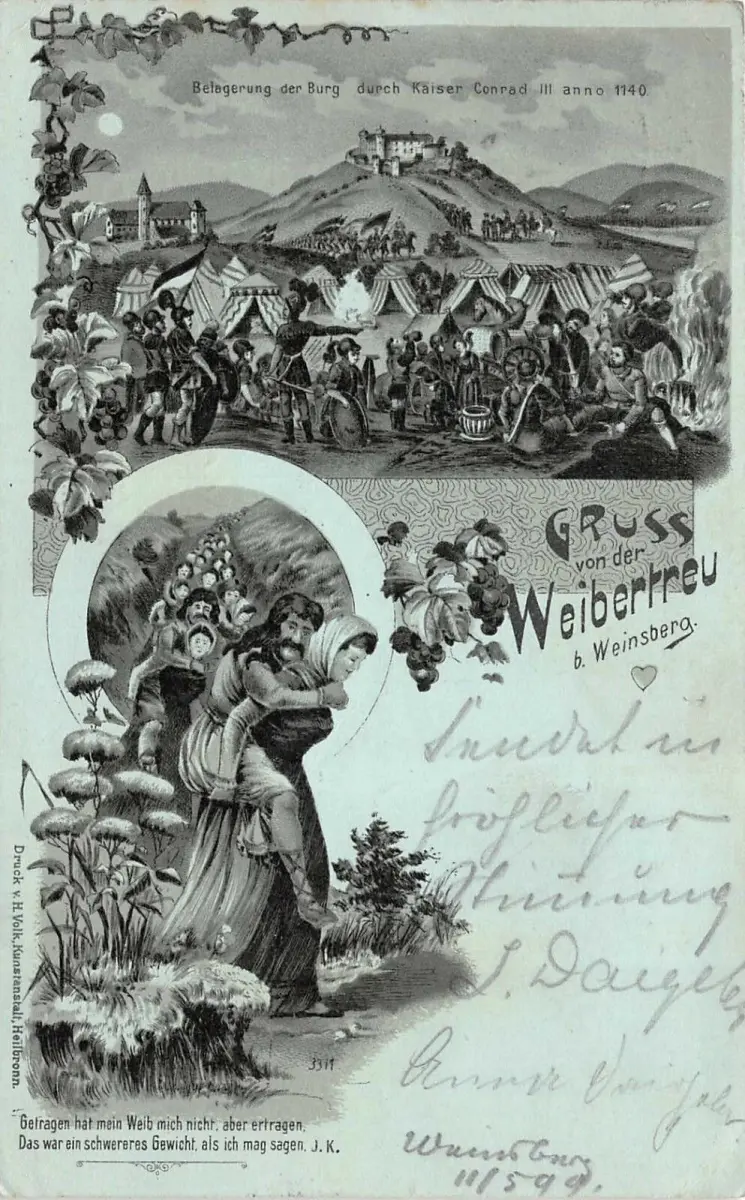 Belagerung der Burg durch Kaiser Conrad III anno 1140.
GRUSS
von der
Weibertreu
b. Weinsberg.
Sendet in
fröhlicher
Stimmung
Anna
Weinsberg
11/5 99.
3311
Druck v. H. Volk, Kunstanstalt, Heilbronn.
Getragen hat mein Weib mich nicht, aber ertragen,
Das war ein schwereres Gewicht, als ich mag sagen. J. K.